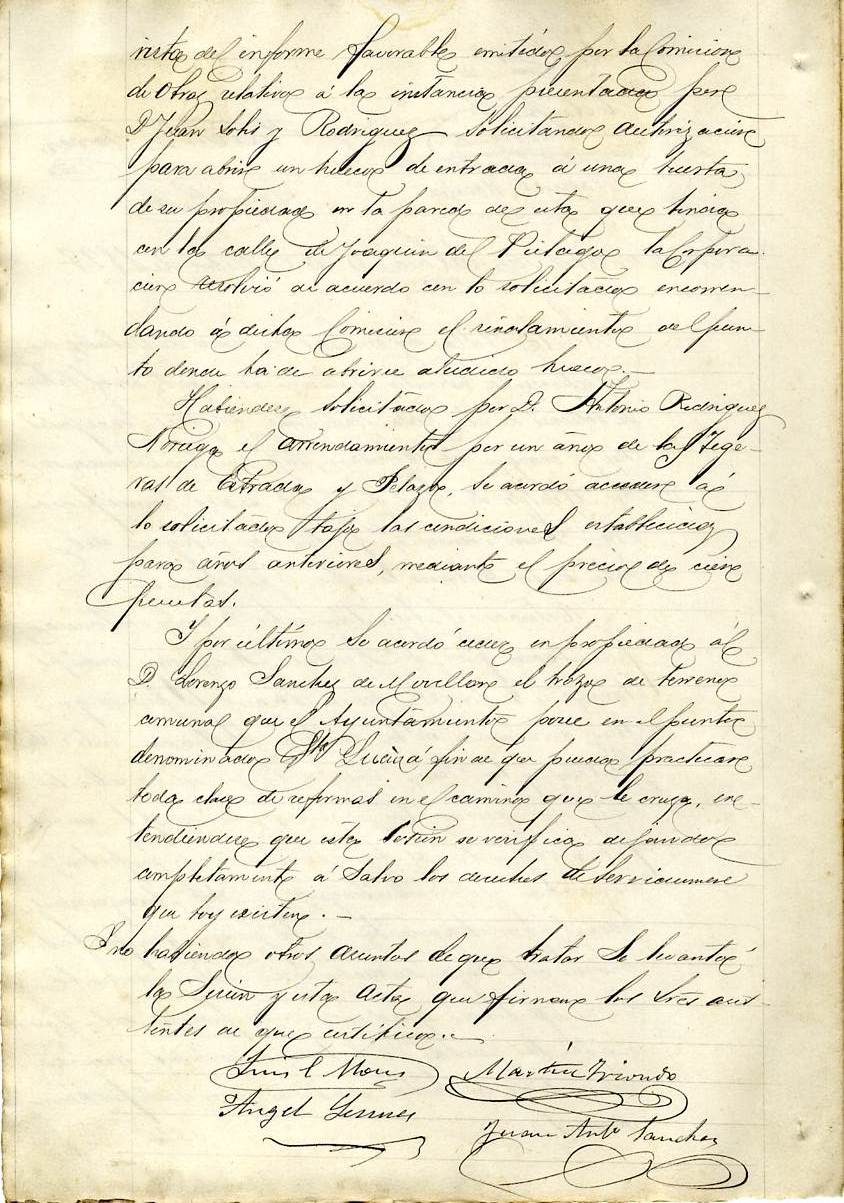 vista del informe favorable emitido por la Comision
de Obras relativo á la instancia presentada por
D. Juan Solis y Rodriguez solicitando autorizacion
para abrir un hueco de entrada á una huerta
de su propiedad en la pared de esta que linda
con la calle de Joaquin del Pielago la Corpora-
cion resolvió de acuerdo con lo solicitado encomen-
dando á dicha Comision el señalamiento del pun-
to donde ha de abrirse aludido hueco.—
Habiendo solicitado por D. Antonio Rodriguez
Noriega el arrendamiento por un año de las
vas de Estrada y Pelazo, se acordó acceder á
lo solicitado bajo las condiciones establecidas
para años anteriores, mediante el precio de cien
pesetas.
Y por último se acordó ceder en propiedad al
D. Lorenzo Sanchez de Movellan el trozo de terreno
comunal que el Ayuntamiento posee en el punto
denominado Sta Lucia á fin de que pueda practicar
toda clase de reformas en el camino que le cruza, en-
tendiendose que esta cesion se verifica dejando
completamente á salvo los derechos de servidumbre
que hoy existen.—
Y no habiendo otros asuntos de que tratar se levantó
la Sesion y esta acta que firman los Sres asis-
tentes de que certifico.—
Martin Triondo
Angel
Juan Anto Sanchez